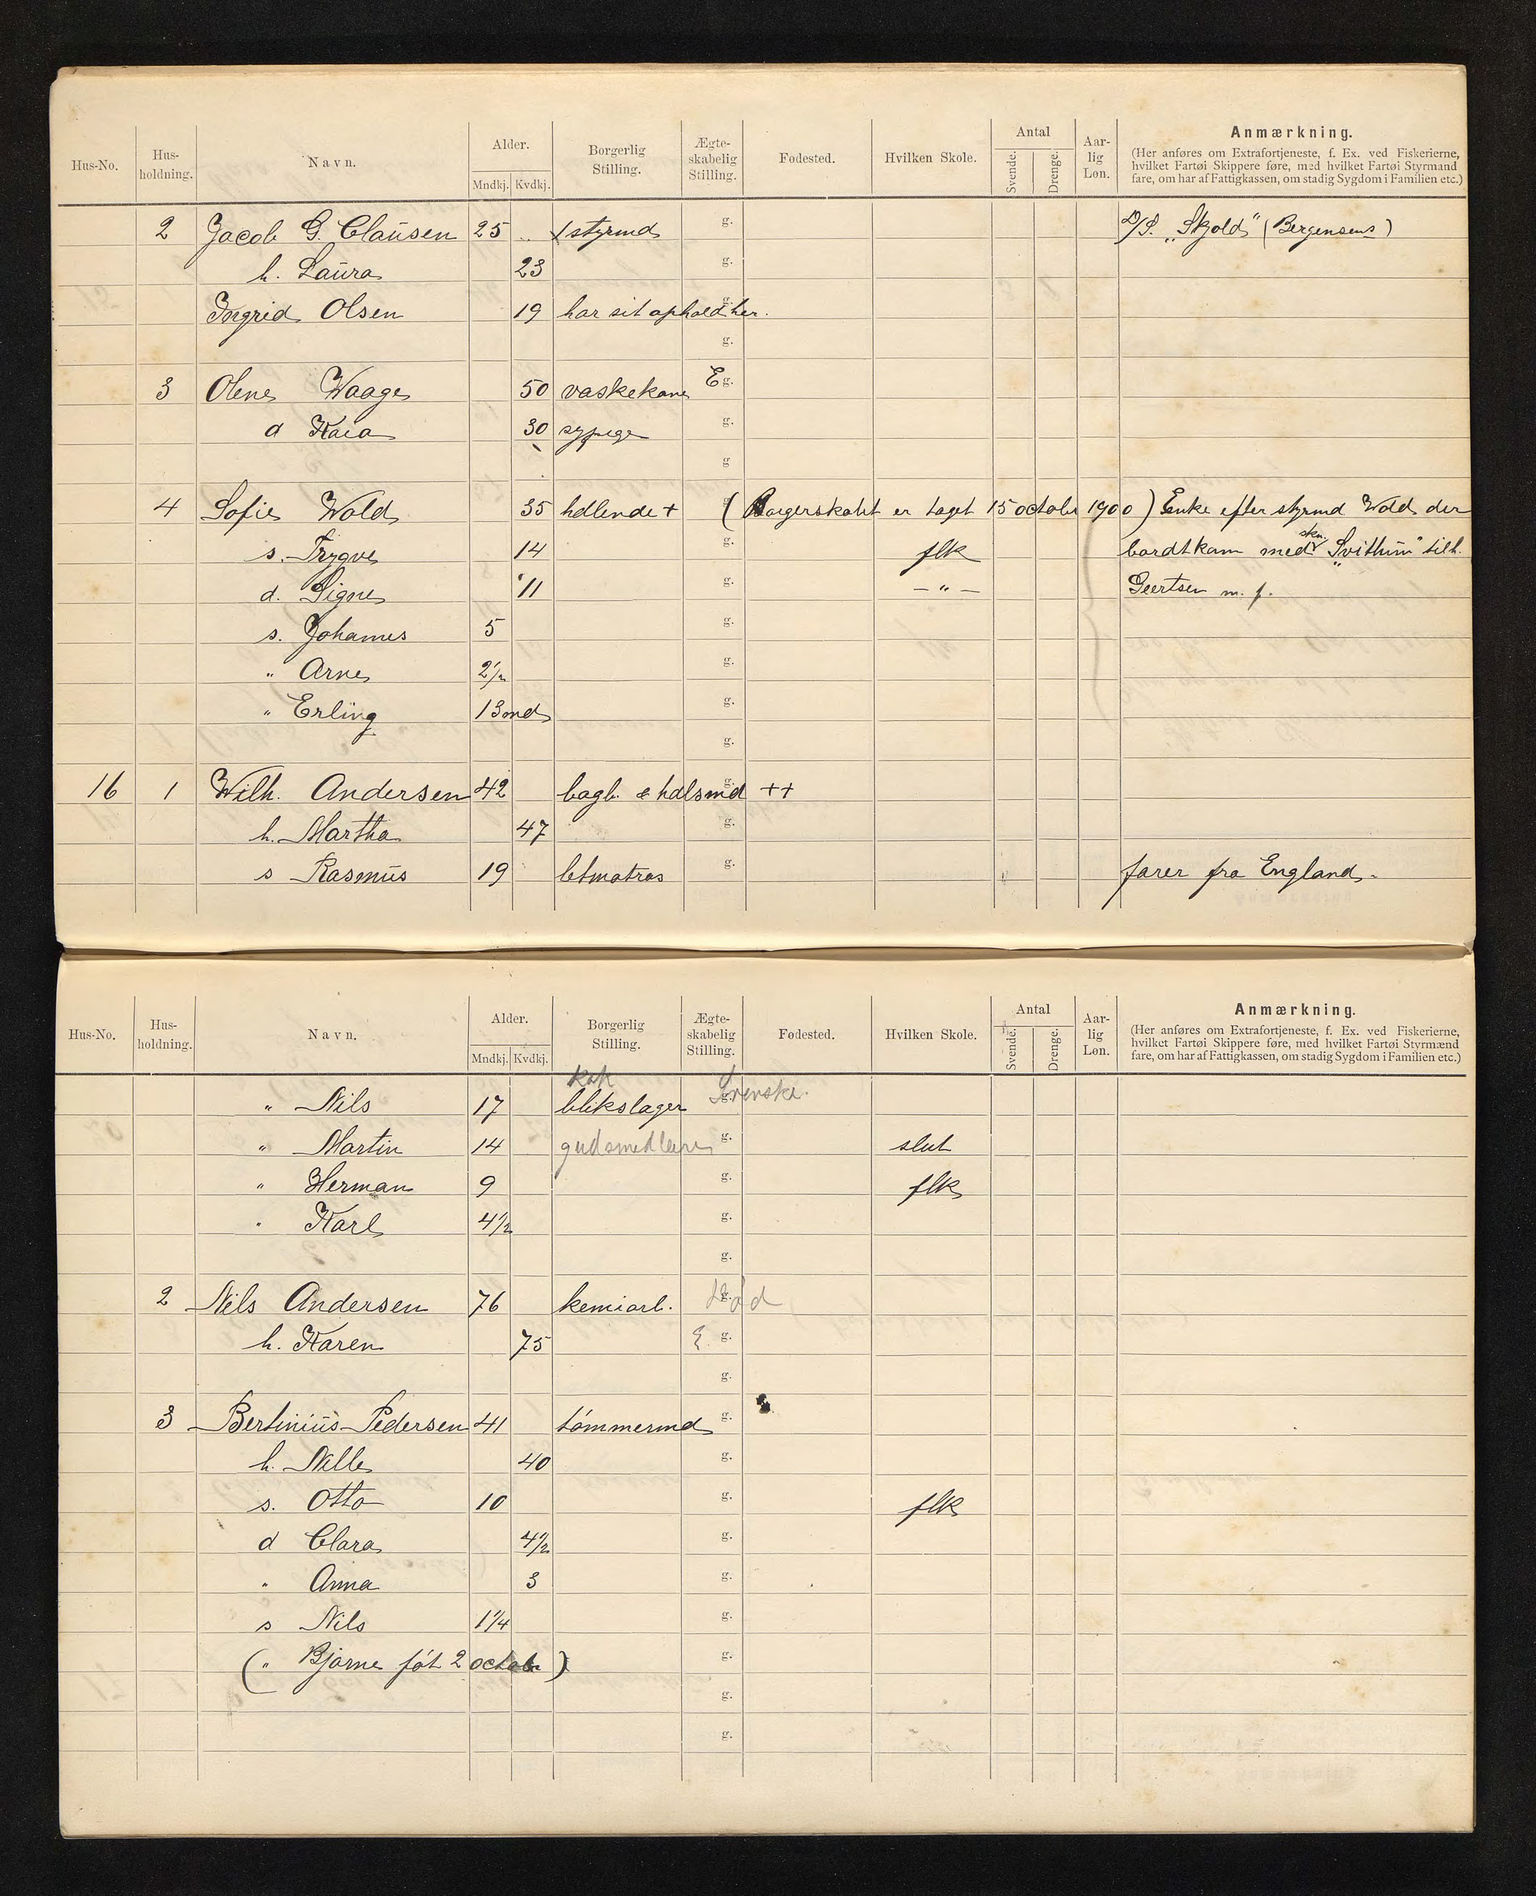 Hus-No. Hus-holdning. Navn. Alder. Mndkj. Kvdkj. Borgerlig Stilling. Ægte-skabelig Stilling. Fødested. Hvilken Skole. Antal Svende. Drenge. Aar-lig Løn. Anmærkning.
(Her anføres om Extrafortjeneste, f. Ex. ved Fiskerierne,
hvilket Fartøi Skippere føre, med hvilket Fartøi Styrmænd
fare, om har af Fattigkassen, om stadig Sygdom i Familien etc.)
2 Jacob G. Clausen 25 styrmd g. D/S. „Skjold" (Bergensens)
h. Laura 23 g.
Ingrid Olsen 19 har sit ophold her. g.
g.
3 Olene Waage 50 vaskekone E g.
d Kaia 30 sypige g.
g.
4 Sofie Wold 35 hdlende + (Borgerskabet er taget 15 octobr 1900) Enke efter styrmd Wold der
s. Trygve 14 g. flk bordtkom med skn. „Svithun" tilh.
d. Signe 11 g. — " — Geertsen m. f.
s. Johannes 5 g.
" Arne 2½ g.
" Erling 13 mdr g.
g.
16 1 Wilh. Andersen 42 bagb. & hdlsmd ++ g.
h. Martha 47 g.
s Rasmus 19 letmatros g. farer fra England.
Hus-No. Hus-holdning. Navn. Alder. Mndkj. Kvdkj. Borgerlig Stilling. Ægte-skabelig Stilling. Fødested. Hvilken Skole. Antal Svende. Drenge. Aar-lig Løn. Anmærkning.
(Her anføres om Extrafortjeneste, f. Ex. ved Fiskerierne,
hvilket Fartøi Skippere føre, med hvilket Fartøi Styrmænd
fare, om har af Fattigkassen, om stadig Sygdom i Familien etc.)
kok
" Nils 17 blikslager g.
" Martin 14 g. slut
" Herman 9 g. flk
" Karl 4½ g.
g.
2 Nils Andersen 76 kemiarb. g. Død
h. Karen 75 E g.
g.
3 Bertinius Pedersen 41 tømmermd g.
h. Nille 40 g.
s. Otto 10 g. flk
d Clara 4½ g.
" Anna 3 g.
s Nils 1¼ g.
(" Bjarne føt 2 octobr) g.
g.
g.